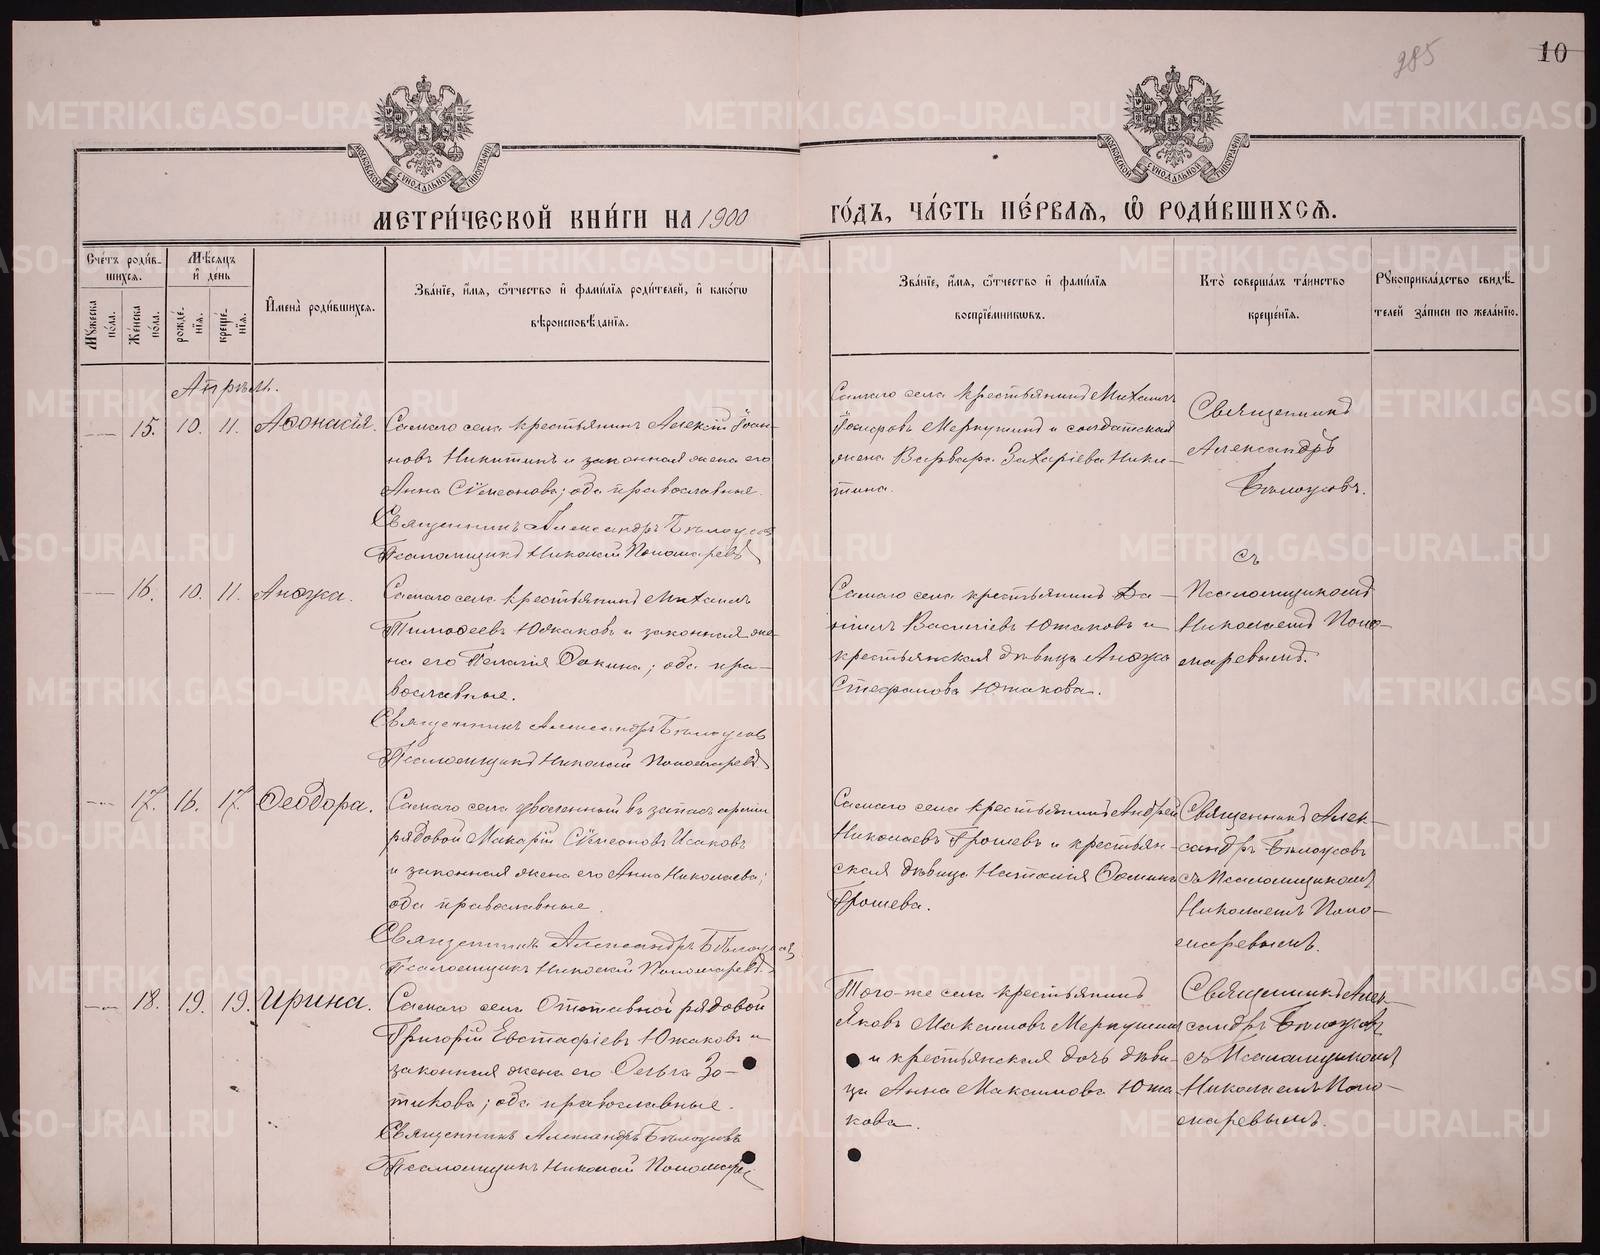 285
10
МЕТРИ́ЧЕСКОЙ КНИ́ГИ НА 1900
ГО́ДЪ, ЧА́СТЬ ПЕ́РВАѦ, Ѽ РОДИ́ВШИХСѦ.
МОСКОВСКОЙ СѴНОДАЛЬНОЙ ТИПОГРАФІИ
МОСКОВСКОЙ СѴНОДАЛЬНОЙ ТИПОГРАФІИ
Сче́тъ роди́вшихсѧ.
Мꙋ́жеска по́ла.
Же́нска по́ла.
Мѣ́сѧцъ и҆ де́нь
рожде́нїѧ.
креще́нїѧ.
И҆мена̀ роди́вшихсѧ.
Зва́нїе, и҆́мѧ, ѻ҆́тчество и҆ фами́лїѧ роди́телей, и҆ како́гѡ
вѣроисповѣ́данїѧ.
Зва́нїе, и҆́мѧ, ѻ҆́тчество и҆ фами́лїѧ
воспрїе́мникѡвъ.
Кто̀ соверша́лъ та́инство
креще́нїѧ.
Рꙋкоприкла́дство свидѣ́-
телей за́писи по жела́нїю.
Апрѣль.
15. 10. 11. Аѳонасія.
Самаго села крестьянинъ Алексій Іоан-
новъ Никитинъ и законная жена его
Анна Сѵмеонова; оба православные.
Священникъ Александръ Бѣлоусовъ
Псаломщикъ Николай Пономаревъ
Самаго села крестьянинъ Михаилъ
Меркушинъ и солдатская
жена Варвара Захаріева Ники-
тина.
Священникъ
Александръ
Бѣлоусовъ.
съ
16. 10. 11. Анѳуса.
Самаго села крестьянинъ Михаилъ
Тимоѳеевъ Южаковъ и законная же-
на его Пелагія Ѳокина; оба пра-
вославные.
Священникъ Александръ Бѣлоусовъ
Псаломщикъ Николай Пономаревъ
Самаго села крестьянинъ Да-
ніилъ Василіевъ Южаковъ и
крестьянская дѣвица Анѳуса
Стефанова Южакова.
Псаломщикомъ
Николаемъ Поно-
маревымъ.
17. 16. 17. Ѳеодора.
Самаго села уволенный въ запасъ арміи
рядовой Макарій Сѵмеоновъ Исаковъ
и законная жена его Анна Николаева;
оба православные.
Священникъ Александръ Бѣлоусовъ
Псаломщикъ Николай Пономаревъ
Самаго села крестьянинъ Андрей
Николаевъ Грошевъ и крестьян-
ская дѣвица Наталія Ѳомина
Грошева.
Священникъ Алек-
сандръ Бѣлоусовъ
съ Псаломщикомъ
Николаемъ Поно-
маревымъ.
18. 19. 19. Ирина.
Самаго села Отставной рядовой
Григорій Евстафіевъ Южаковъ и
законная жена его Ольга Зо-
тикова; оба православные.
Священникъ Александръ Бѣлоусовъ
Псаломщикъ Николай Пономарев
Того-же села крестьянинъ
Яковъ Максимовъ Меркушинъ
и крестьянская дочь дѣви-
ца Анна Максимова Южа
кова.
Священникъ Алек-
сандръ Бѣлоусовъ
съ Псаломщикомъ
Николаемъ Поно-
маревымъ.
METRIKI.GASO-URAL.RU